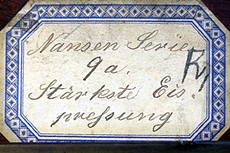 Nansen Serie
9a.
Stärkste Eis-
pressung